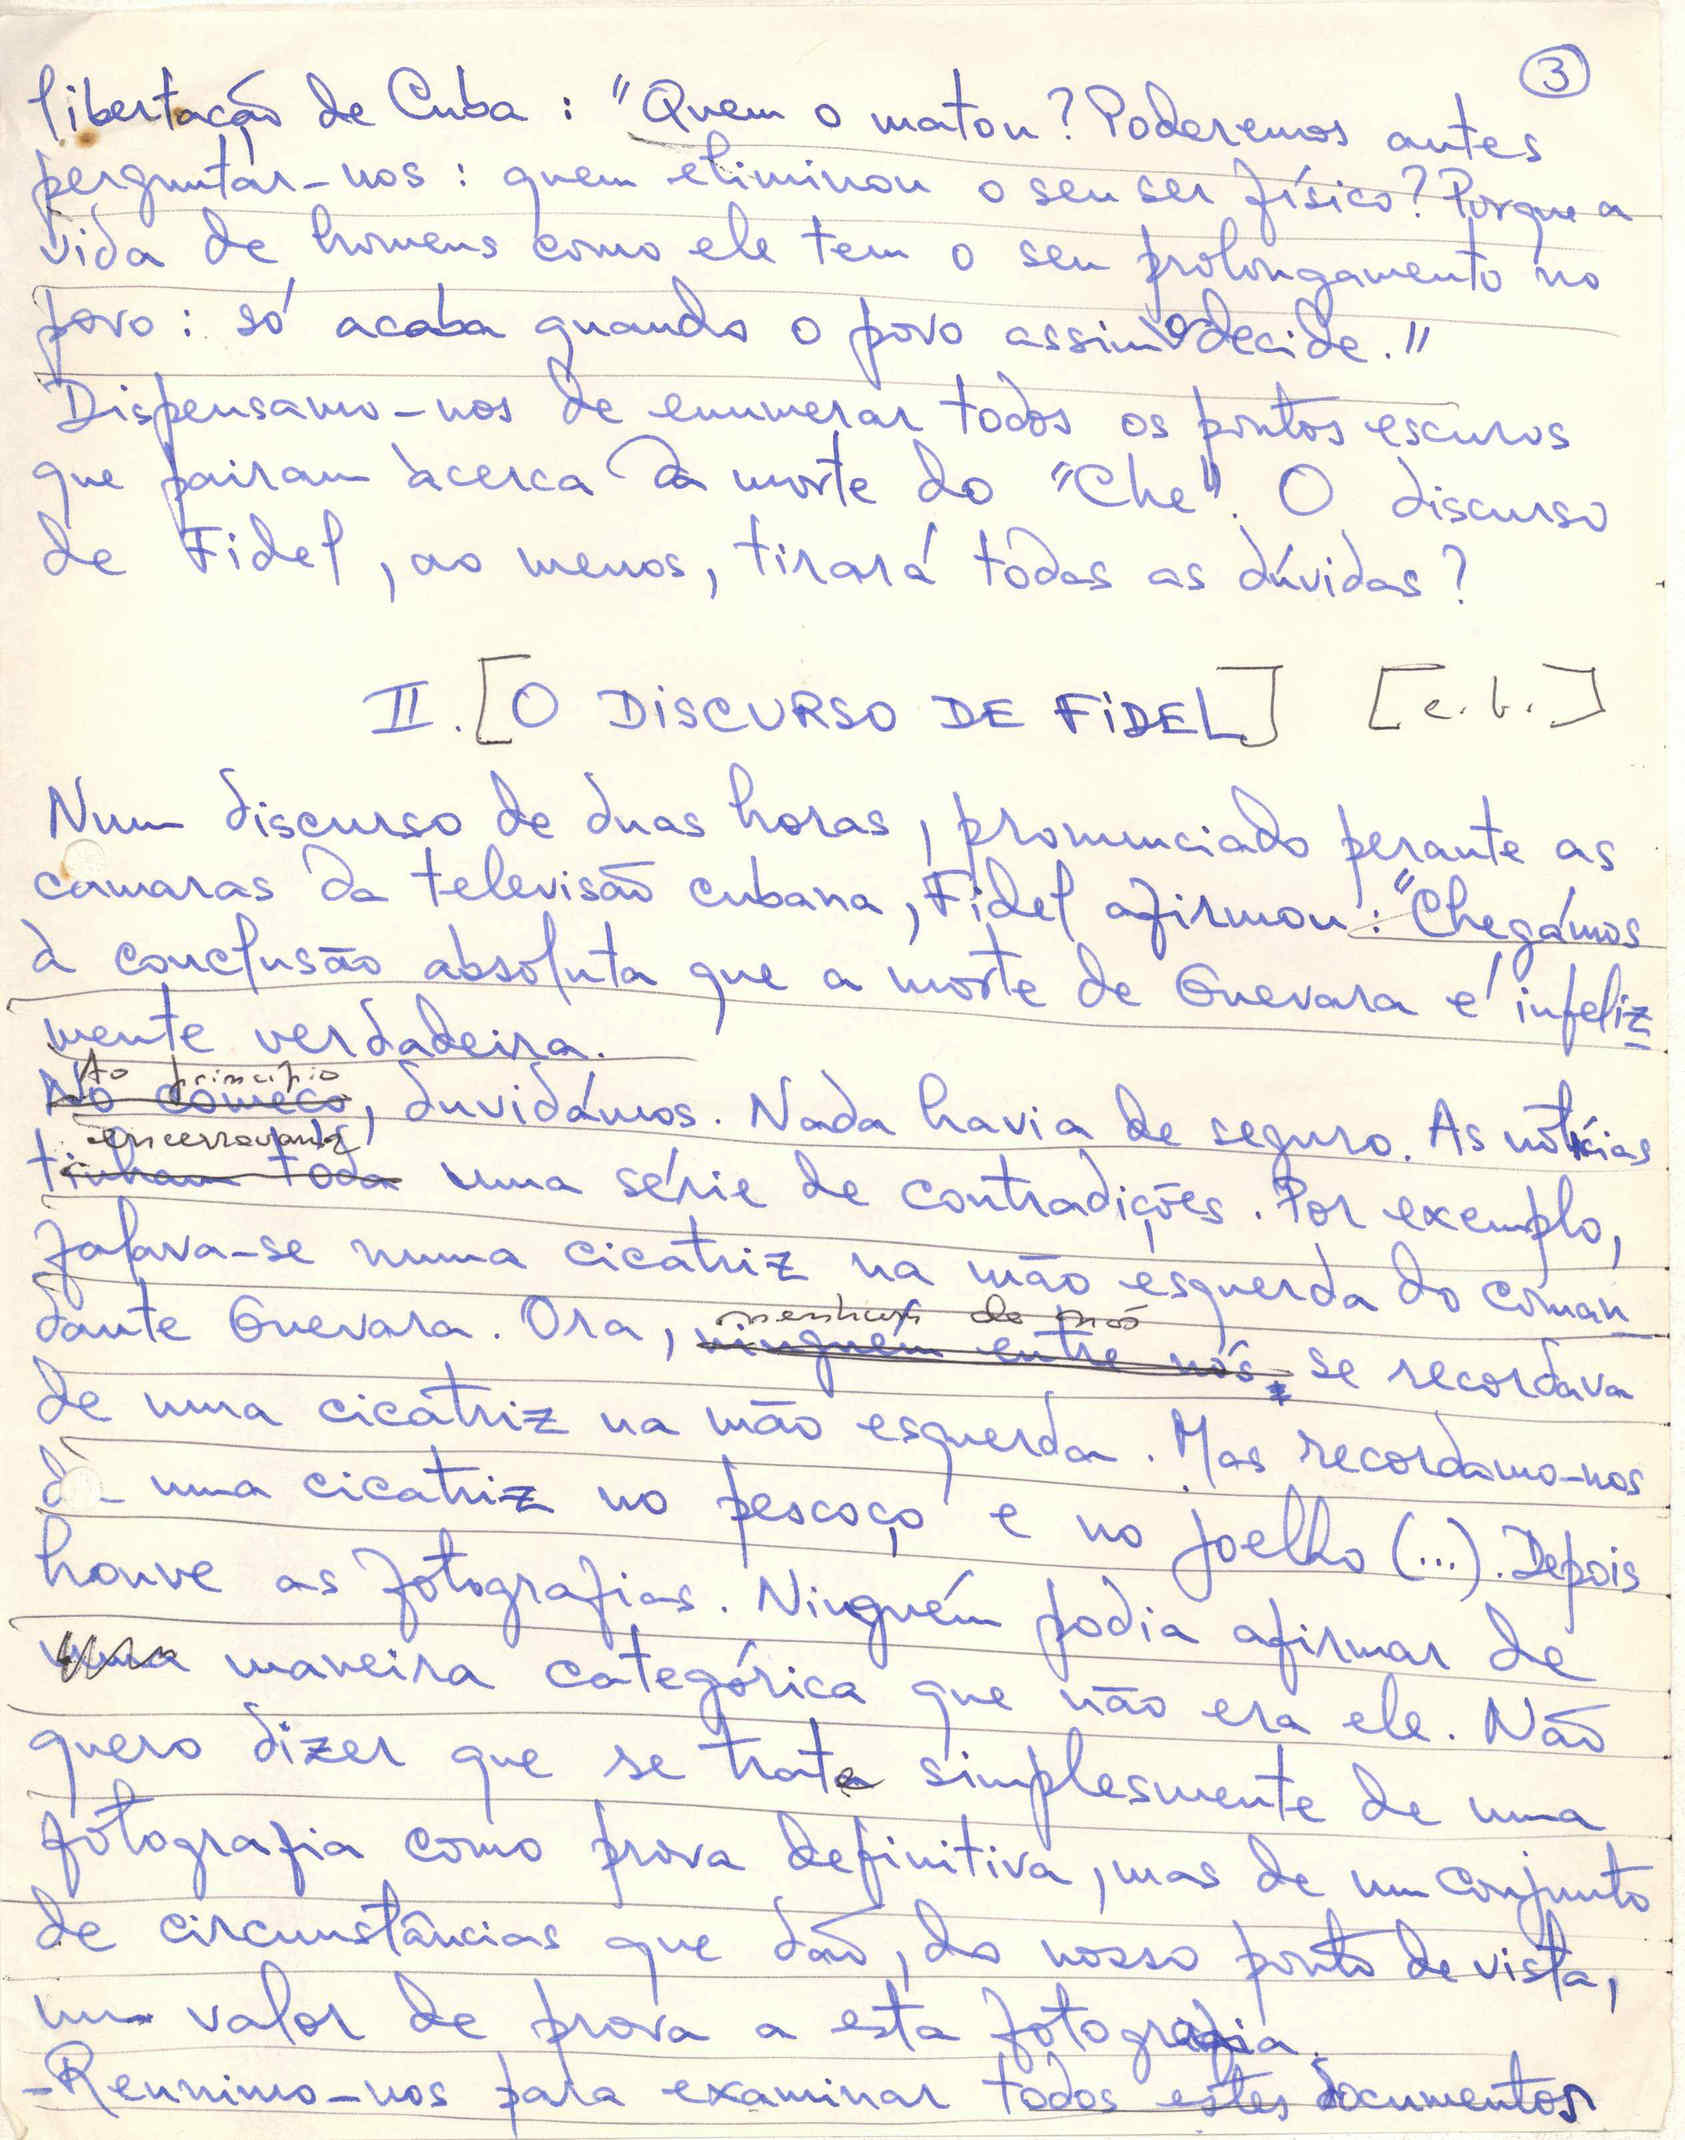 3
libertação de Cuba : "Quem o matou? Poderemos antes
perguntar-nos : quem eliminou o seu ser físico? Porque a
vida de homens como ele tem o seu prolongamento no
povo : só acaba quando o povo assim o decide."
Dispensamo-nos de enumerar todos os pontos escuros
que pairam àcerca da morte do "Che". O discurso
de Fidel, ao menos, tirará todas as dúvidas?
II. [O DISCURSO DE FIDEL] [c.b.]
Num discurso de duas horas, pronunciado perante as
camaras da televisão cubana, Fidel afirmou : "Chegámos
à conclusão absoluta que a morte de Guevara é infeliz
mente verdadeira.
Ao princípio
No começo, duvidámos. Nada havia de seguro. As notícias
encerravam
tinham toda uma série de contradições. Por exemplo,
falava-se numa cicatriz na mão esquerda do coman
dante Guevara. Ora, ninguém entre nós, se recordava
nenhum de nós
de uma cicatriz na mão esquerda. Mas recordamo-nos
uma cicatriz no pescoço e no joelho (...). Depois
houve as fotografias. Ninguém podia afirmar de
uma maneira categórica que não era ele. Não
quero dizer que se trate simplesmente de uma
fotografia como prova definitiva, mas de um conjunto
de circunstâncias que dão, do nosso ponto de vista,
um valor de prova a esta fotografia.
-Reunimo-nos para examinar todos estes documentos